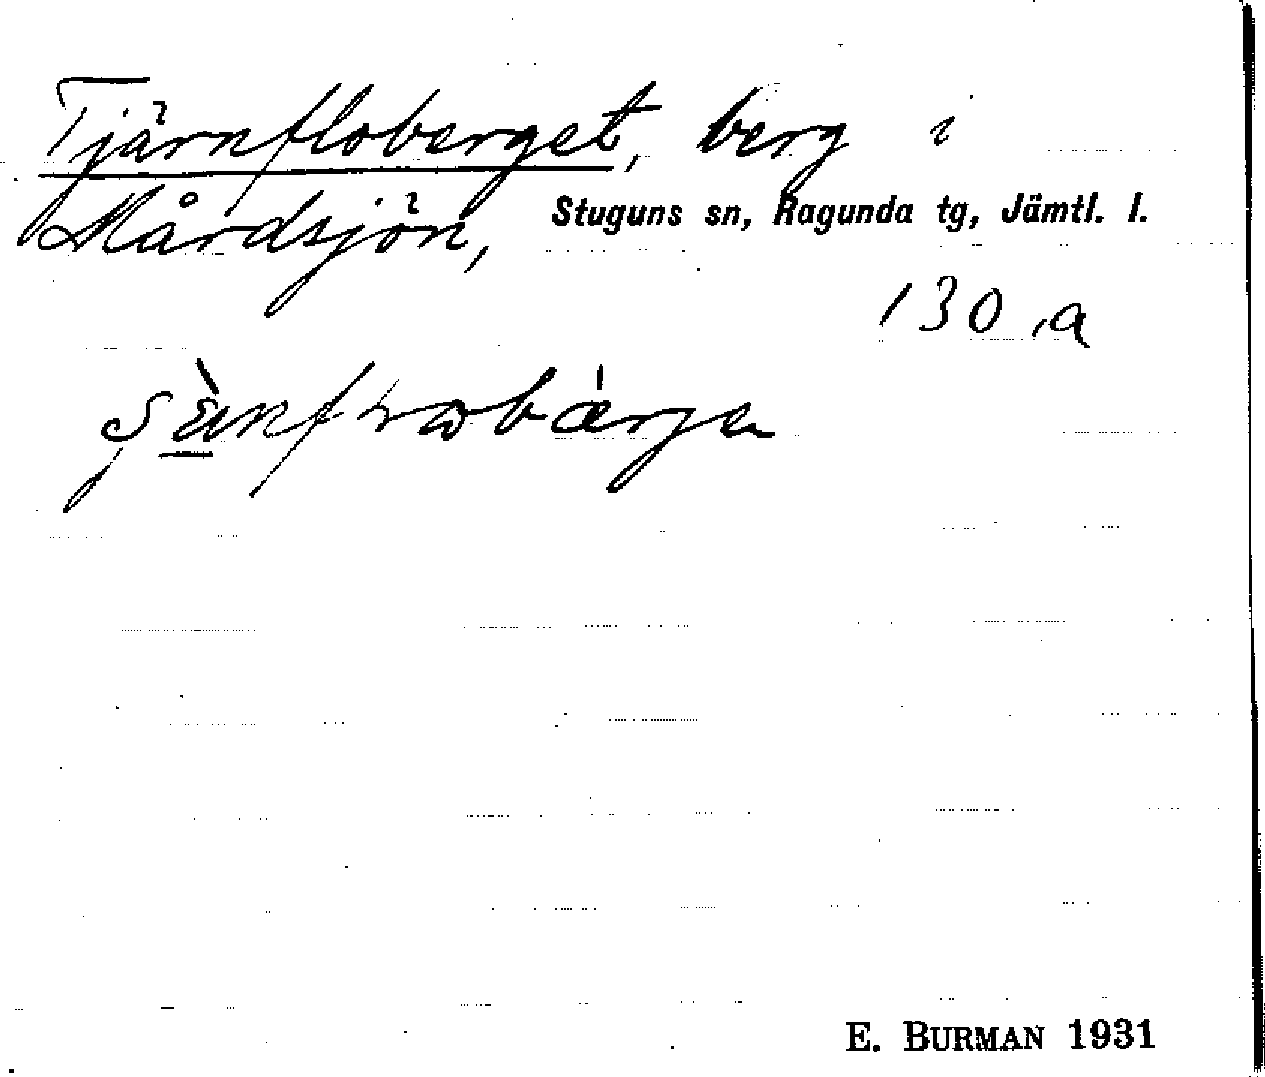 Tjärnfloberget, berg i
Mårdsjön, Stuguns sn, Ragunda tg, Jämtl. l.
130 a
E. BURMAN 1931